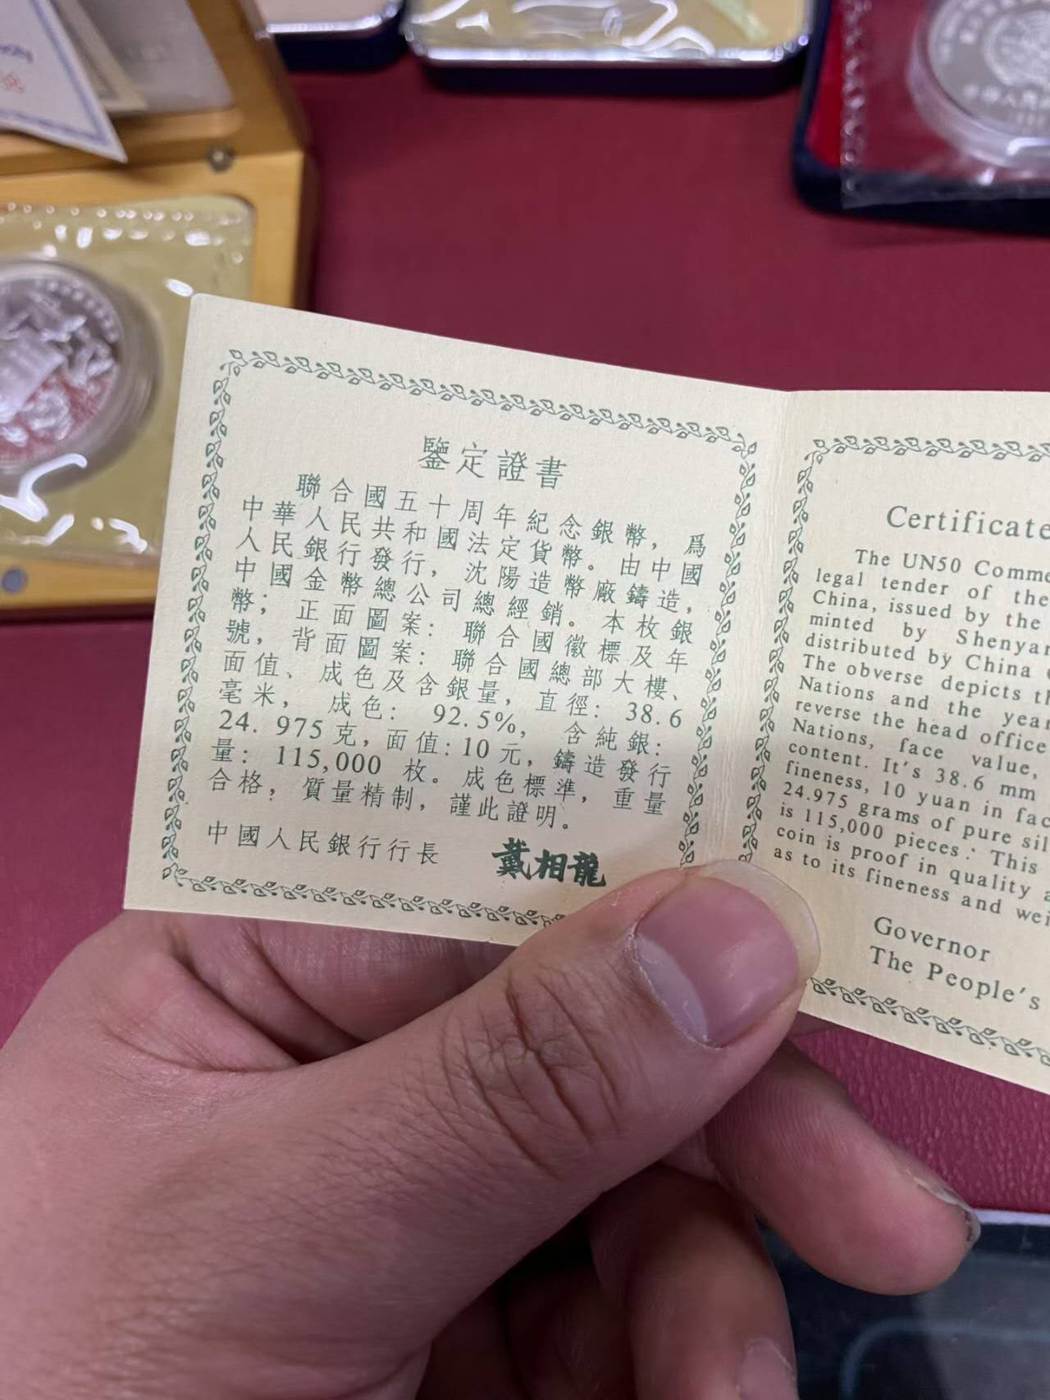 鑒定證書
聯合國五十周年紀念銀幣，爲
中華人民共和國法定貨幣。由中國
人民銀行發行，沈陽造幣廠鑄造，
中國金幣總公司總經銷。本枚銀
幣；正面圖案：聯合國徽標及年
號，背面圖案：聯合國總部大樓、
面值、成色及含銀量，直徑：38.6
毫米，成色：92.5%，含純銀：
24.975克，面值：10元，鑄造發行
量：115,000枚。成色標準，重量
合格，質量精制，謹此證明。
中國人民銀行行長 戴相龍
Certificate
The UN50 Comme
legal tender of the
China, issued by the
minted by Shenyan
distributed by China
The obverse depicts th
Nations and the year
reverse the head office
Nations, face value,
content. It's 38.6 mm
fineness, 10 yuan in fac
24.975 grams of pure sil
is 115,000 pieces. This
coin is proof in quality a
as to its fineness and wei
Governor
The People's